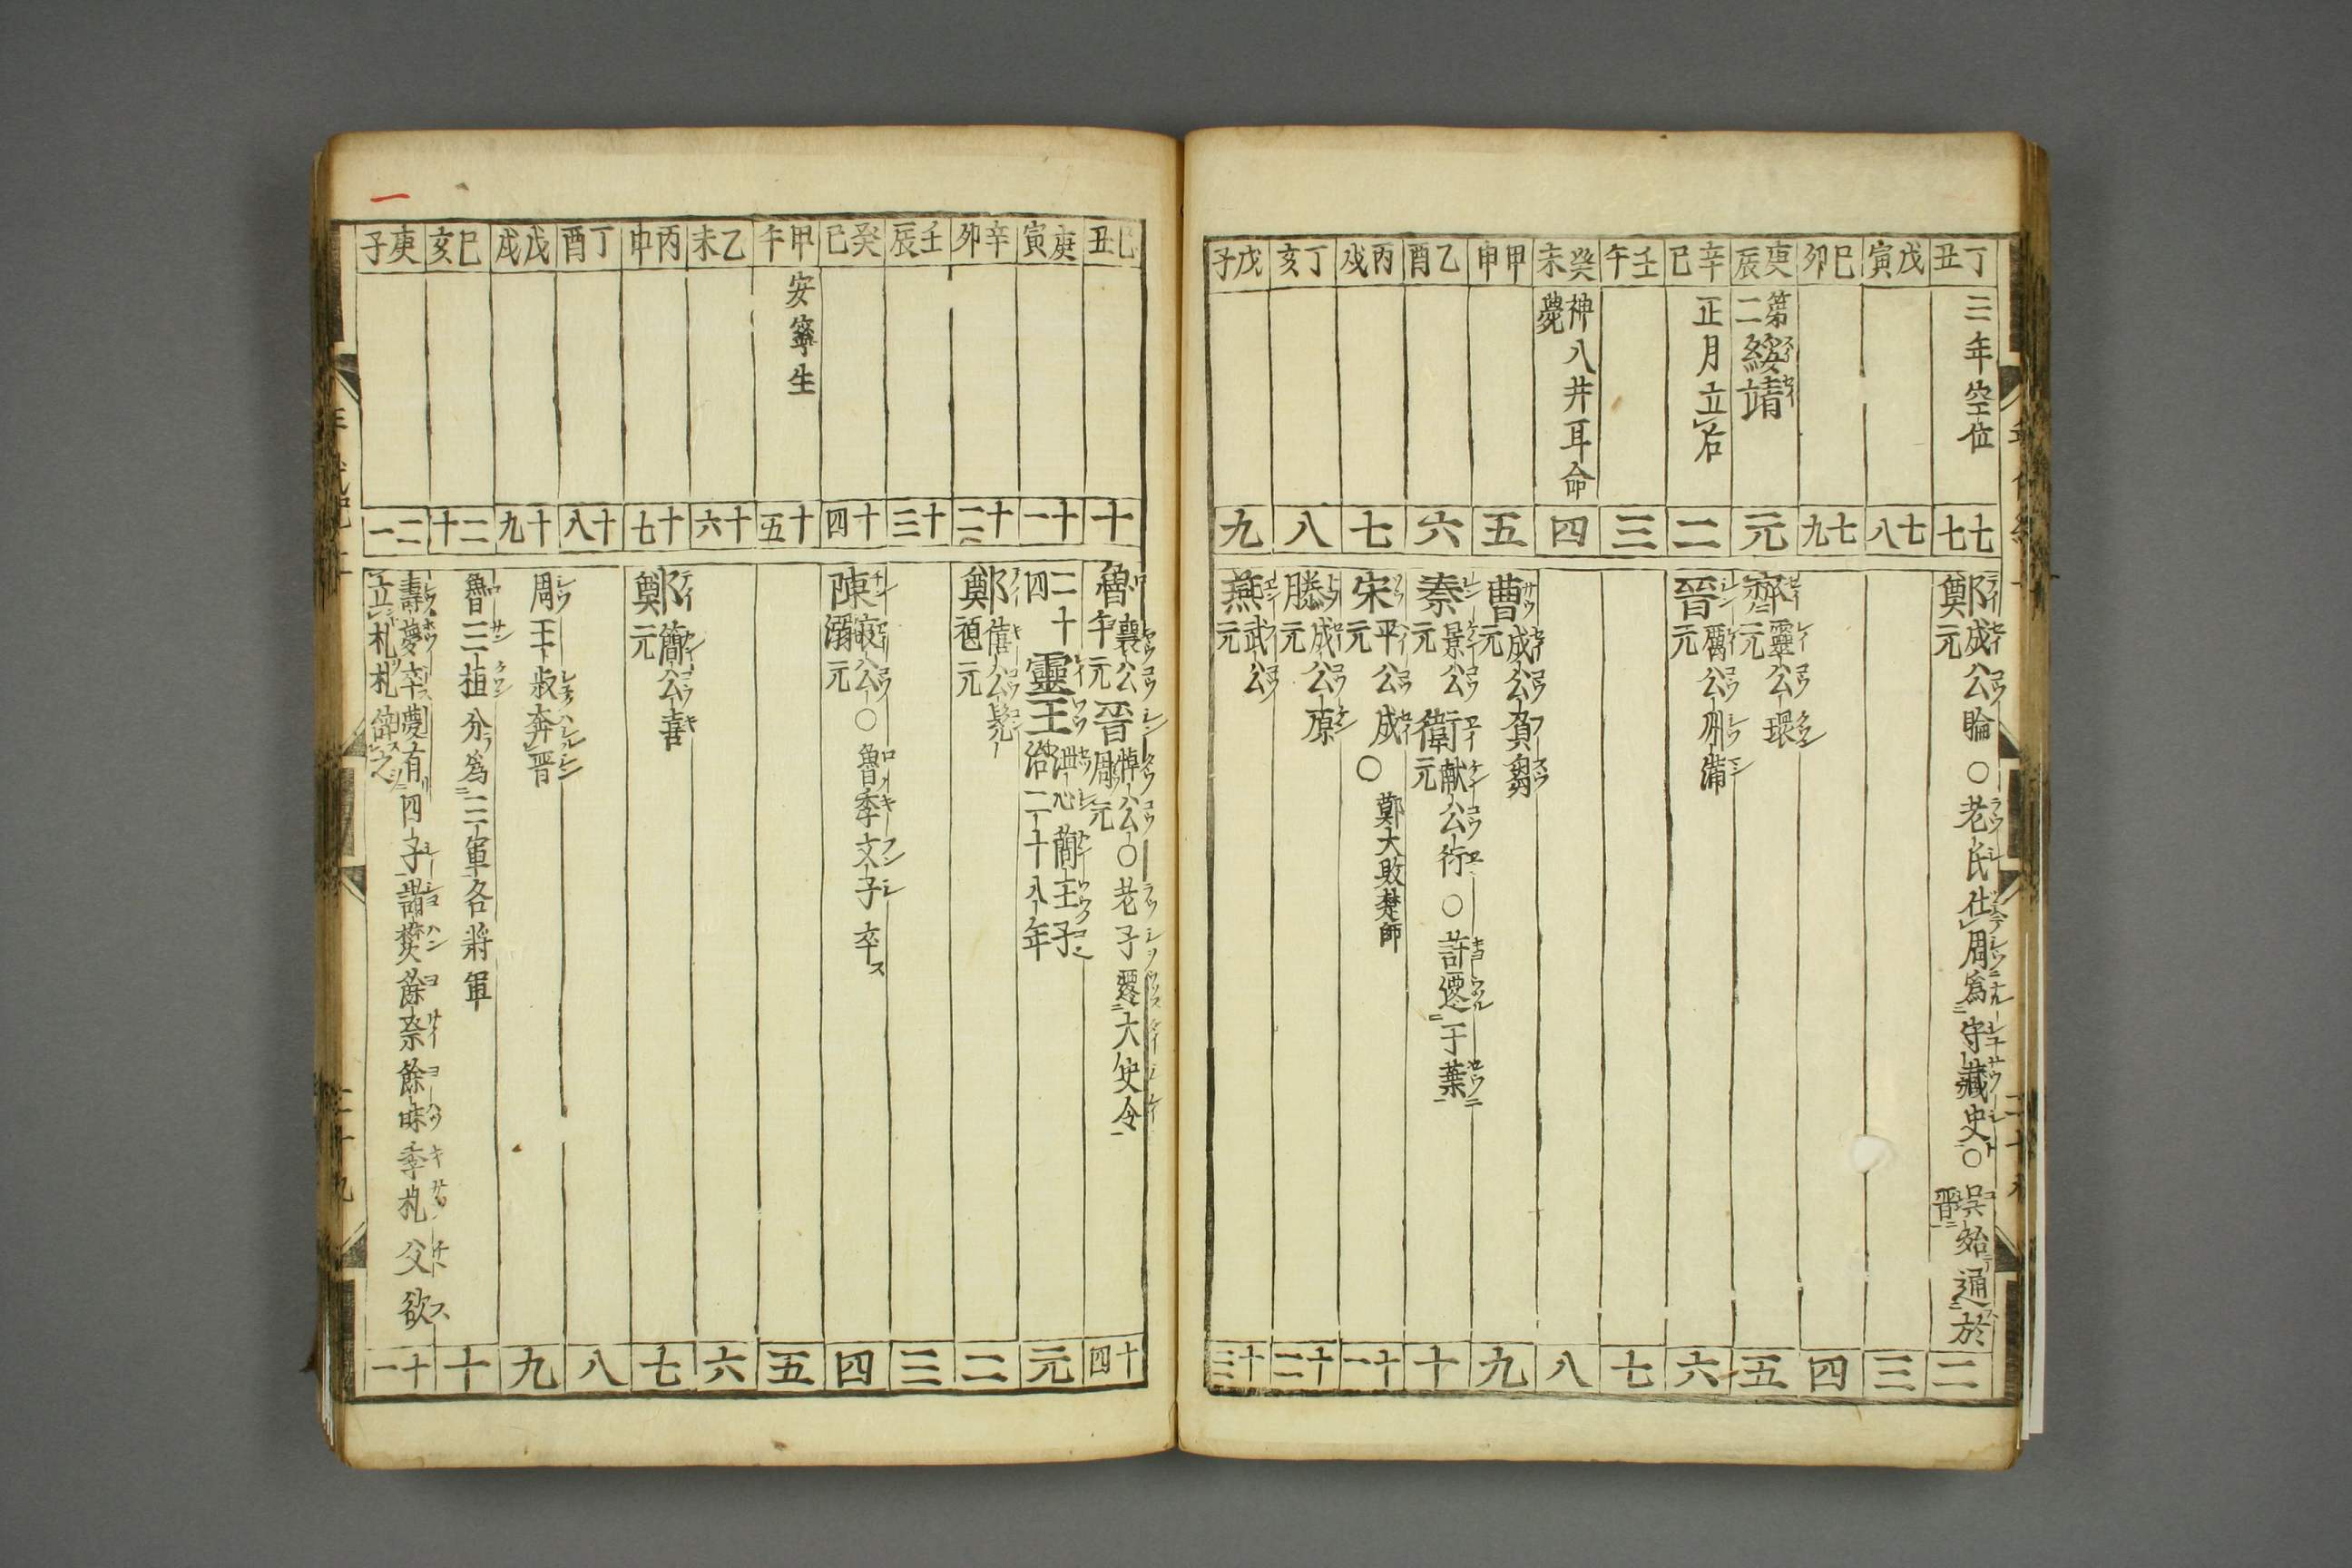 丁丑 三年空位 七七 鄭成公睔元 ○老氏仕周爲守藏史○呉始通於晋 二
戊寅 七八 三
己卯 七九 四
庚辰 第二綏靖 元 齊靈公環元 五
辛巳 正月立右 二 晉厲公州蒲元 六
壬午 三 七
癸未 神八井耳命薨 四 八
甲申 五 曹成公負芻元 九
乙酉 六 秦景公元 衛献公衎元 ○許遷于葉 十
丙戌 七 宋平公成元 ○鄭大敗楚師 十一
丁亥 八 滕成公原元 十二
戊子 九 燕武公元 十三
己丑 十 魯襄公午元 晉悼公周元○老子遷大史令 十四
庚寅 十一 二十四靈王泄心簡王子治二十八年 元
辛卯 十二 鄭僖公髠頑元 二
壬辰 十三 三
癸巳 十四 陳哀公溺元 ○魯季文子卒 四
甲午 安寧生 十五 五
乙未 十六 六
丙申 十七 鄭簡公嘉元 七
丁酉 十八 八
戊戌 十九 周王叔奔晋 九
己亥 二十 魯三桓分爲三軍各將軍 十
庚子 二一 壽夢卒夢有四子諸樊餘祭餘昧季札父欲立札札辞之 十一
年代紀一